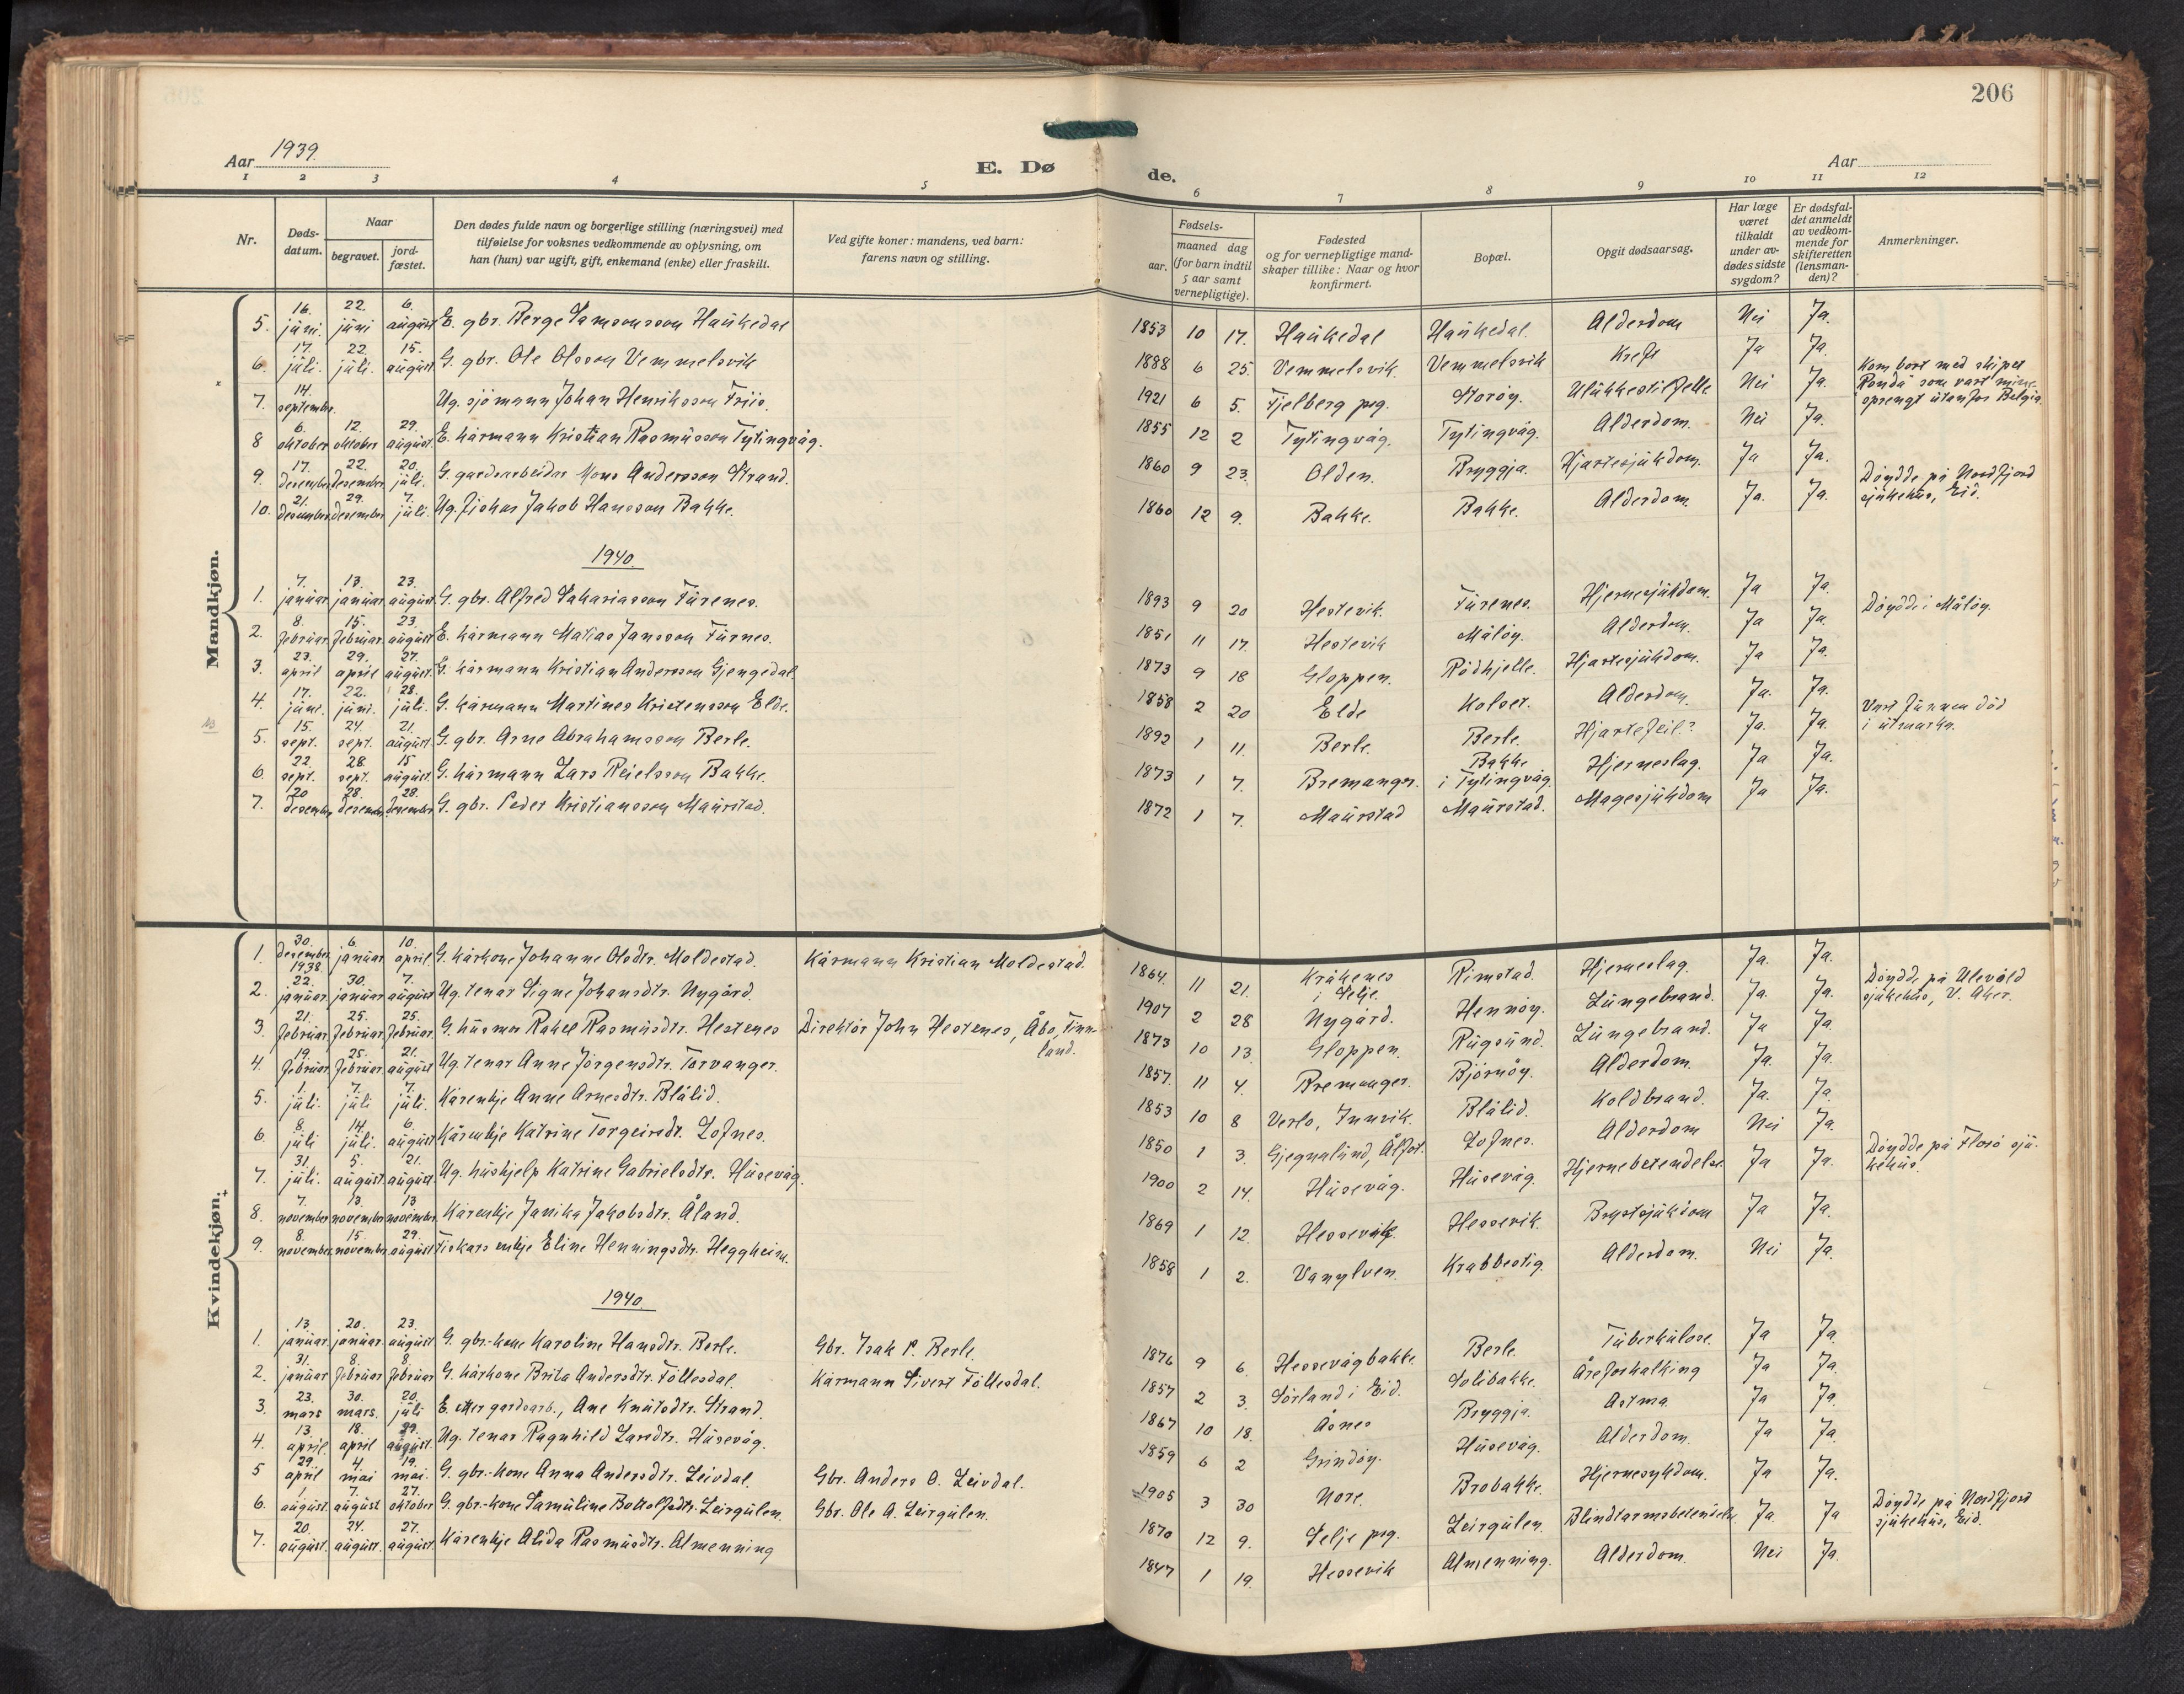 206
Aar 1939.
E. Dø
de.
Aar
1 2 3 4 5 6 7 8 9 10 11 12
Nr.
Døds-
datum.
Naar
begravet.
jord-
fæstet.
Den dødes fulde navn og borgerlige stilling (næringsvei) med
tilføielse for voksnes vedkommende av oplysning, om
han (hun) var ugift, gift, enkemand (enke) eller fraskilt.
Ved gifte koner: mandens, ved barn:
farens navn og stilling.
Fødsels-
aar.
maaned dag
(for barn indtil
5 aar samt
vernepligtige).
Fødested
og for vernepligtige mand-
skaper tillike: Naar og hvor
konfirmert.
Bopæl.
Opgit dødsaarsag.
Har læge
været
tilkaldt
under av-
dødes sidste
sygdom?
Er dødsfal-
det anmeldt
av vedkom-
mende for
skifteretten
(lensman-
den)?
Anmerkninger.
Mandkjøn.
5. 16. juni. 22. juni 6. august E. gbr. Berge Samsonsson Haukedal 1853 10 17. Haukedal Haukedal. Alderdom Nei Ja.
6. 17. juli. 22. juli. 15. august G. gbr. Ole Olsson Vemmelsvik 1888 6 25. Vemmelsvik. Vemmelsvik Kreft Ja Ja.
7. 14. septembr. Ug. sjömann Johan Henriksson Friis. 1921 6 5. Fjelberg prg. Storöy. Ulukkestilfelle. Nei Ja. Kom bort med skipet
"Ronda" som vart mine-
sprengt utanfor Belgia.
8 6. oktober 12. oktober 29. august E. kårmann Kristian Rasmusson Tytingvåg. 1855 12 2 Tytingvåg. Tytingvåg. Alderdom. Nei Ja.
9. 17. desember 22. desember 20. juli. G. gardsarbeidar Mons Andersson Strand. 1860 9 23. Olden. Bryggja. Hjartesjukdom. Ja Ja. Döydde på Nordfjord
sjukehus, Eid.
10. 21. desember 29. desember 7. juli. Ug. fiskar Jakob Hansson Bakke. 1860 12 9. Bakke. Bakke. Alderdom. Ja. Ja.
1940.
1. 7. januar 13. januar 23. august. G. gbr. Alfred Sakariasson Furenes. 1893 9 20 Hestevik. Furenes. Hjernesjukdom. Ja Ja. Döydde i Målöy.
2. 8. februar 15. februar 23. august E. kårmann Matias Jansson Furnes. 1851 11 17. Hestevik Målöy. Alderdom. Ja Ja.
3. 23. april 29. april 27. august. G. kårmann Kristian Andersson Gjengedal. 1873 9 18 Gloppen. Rödhjelle. Hjartesjukdom. Ja Ja.
4. 17. juni. 22. juni. 28. juli. G. kårmann Martines Kristensson Elde. 1858 2 20 Elde Kolset. Alderdom. Ja. Ja.
5. 15. sept. 24. sept. 21. august. G. gbr. Arne Abrahamsson Berle. 1892 1 11. Berle. Berle. Hjartefeil? Ja. Ja. Vart funnen död
i utmarka.
6. 22. sept. 28 sept. 15 august. G. kårmann Lars Reielsson Bakke. 1873 1 7. Bremanger. Bakke
i Tytingvåg. Hjerneslag. Ja Ja.
7. 20 desember 28. desember 28. desember G. gbr. Peder Kristiansson Maurstad. 1872 1 7. Maurstad Maurstad. Magesjukdom Ja Ja.
Kvindekjøn.
1. 30. desember 1938. 6. januar 10. april. G. kårkone Johanne Olsdtr. Moldestad. Kårmann Kristian Moldestad. 1864 11 21. Kråkenes
i Selje. Rimstad. Hjerneslag. Ja. Ja.
2. 22. januar 30. januar 7. august Ug. tenar Signe Johansdtr. Nygård. 1907 2 28 Nygård. Hennöy. Lungebrand. Ja. Ja. Döydde på Ulevåld
sjukehus, V. Aker.
3. 21. februar. 25. februar 25. februar. G. husmor Rakel Rasmusdtr. Hestenes Direktör John Hestenes, Åbo, Finn-
land. 1873 10 13. Gloppen. Rugsund. Lungebrand. Ja Ja.
4. 19. februar. 25. februar. 21. august Ug. tenar Anne Jörgensdtr. Torvanger. 1857. 11 4. Bremanger. Björnöy. Alderdom. Ja. Ja.
5. 1. juli. 7. juli 7. juli. Kårenkje Anne Arnesdtr. Blålid. 1853 10 8 Verlo, Innvik. Blålid. Koldbrand. Ja. Ja.
6. 8. juli 14. juli. 6. august Kårenkje Katrine Torgeirsdt. Lofnes. 1850 1 3. Gjegnalund, Ålfot. Lofnes. Alderdom Nei Ja.
7. 31. juli. 5. august. 21. august. Ug. hushjelp Katrine Gabrielsdtr. Husevåg. 1900 2 14. Husevåg. Husevåg. Hjernebetendelse. Ja Ja. Döydde på Florö sju-
kehus.
8. 7. november 13. november 13. november. Kårenkje Janika Jakobsdtr. Åland. 1869 1 12. Hessevik. Hessevik. Brystsjukdom Ja Ja.
9. 8. november 15. november 29. august Fiskars enkje Eline Henningsdtr. Heggheim. 1858 1 2. Vanylven. Krabbestig. Alderdom. Nei Ja.
1940.
1. 13. januar. 20. januar. 23. august G. gbr.-kone Karoline Hansdtr. Berle. Gbr. Isak P. Berle. 1876 9 6. Hessevågbakke. Berle. Tuberkulose. Ja Ja.
2. 31. januar 8. februar 8. februar G. kårkone Brita Andersdtr. Föllesdal. Kårmann Sivert Föllesdal. 1857 2 3. Sörland i Eid. Solibakke. Åreforkalking Ja Ja.
3. 23. mars 30. mars. 20. juli E. etter gardsarb., Ane Knutsdtr. Strand. 1867 10 18. Åsnes Bryggja. Astma. Ja Ja.
4. 13. april. 18. april 29. august. Ug. tenar Ragnhild Larsdtr. Husevåg. 1859 6 2 Grindöy. Husevåg. Alderdom. Ja Ja.
5 29. april 4. mai 19. mai. G. gbr.-kone Anna Andersdtr. Leivdal. Gbr. Anders O. Leivdal. 1905 3 30 Nore. Brobakke. Hjernesykdom. Ja Ja.
6. 1. august 7. august 27. oktober G. gbr.-kone Samuline Bottolfsdtr. Leirgulen. Gbr. Ole A. Leirgulen. 1870 12 9. Selje prg. Leirgulen. Blindtarmsbetendelse. Ja. Ja Döydde på Nordfjord
sjukehus, Eid.
7. 20. august. 24. august. 27. august. Kårenkje Alida Rasmusdtr. Almenning 1847 1 19. Hessevik Almenning. Alderdom. Nei Ja.